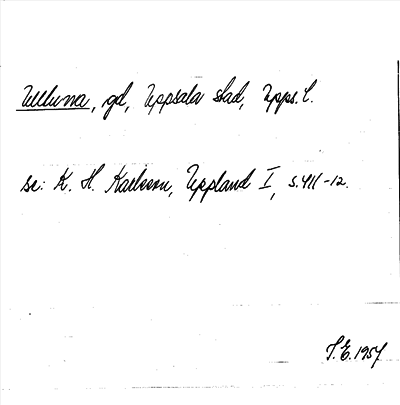 Ulluna, gd, Uppsala stad, Upps. l.
se: K. H. Karlsson, Uppland I, s. 411-12.
T. E. 1957